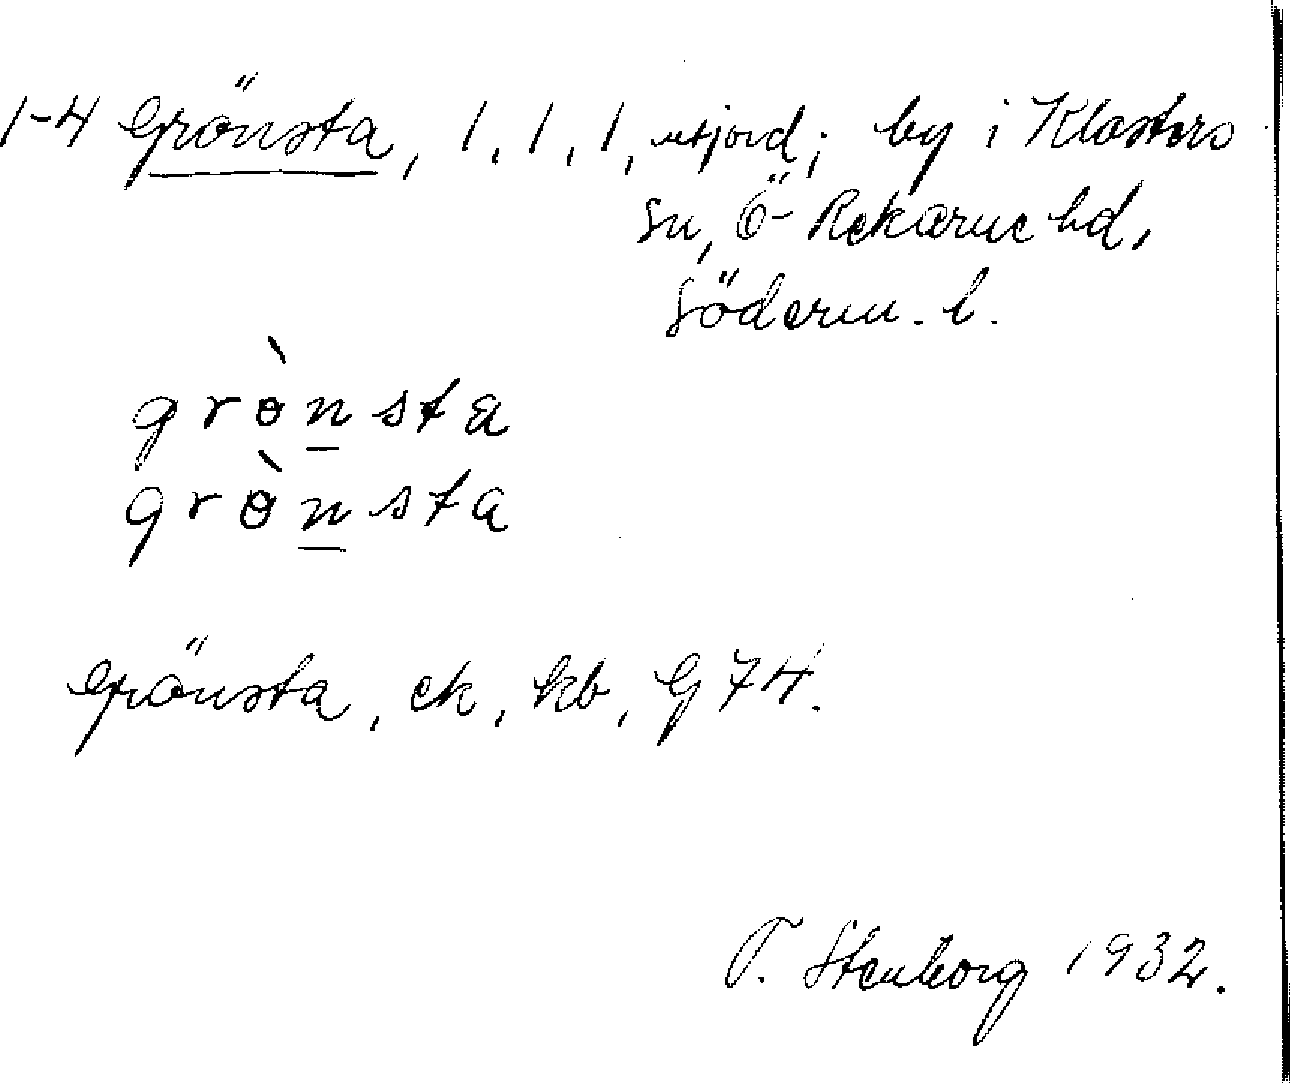 1-4 Grönsta, 1, 1, 1, utjord; by i Klosters
sn, Ö- Rekarne hd,
Söderm. l.
grɵ̀n̲sta
grɵ̀n̲sta
Grönsta, ek, kb, G 74.
T. Stenborg 1932.